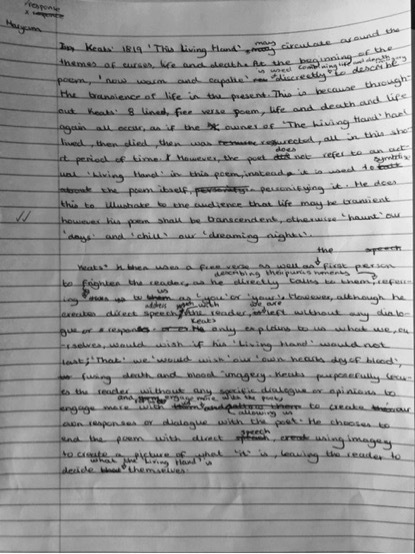 response
Maryam
Keats' 1819 'This Living Hand', may circulate around the
themes of curses, life and death. At the beginning of the
poem, 'now warm and capable' is used combining life and death discreetly to describe
the transience of life in the present. This is because through-
out Keats' 8 lined, free verse poem, life and death and life
again all occur, as if the owner of 'The Living Hand' had
lived, then died, then was resurected, all in this sho
rt period of time. However, the poet does not refer to an act-
ual 'Living Hand' in this poem, instead, it is used to symbolise
the poem itself, personifying it. He does
this to illustrate to the audience that life may be transient
however his poem shall be transcendent, otherwise 'haunt' our
'days' and 'chill' our 'dreaming nights'.
Keats then uses a free verse as well as the first person
to frighten the reader, as he directly describing their punishments talks to them, refer-
ing to us as 'you' or 'your's. However, although he
creates direct speech, with the reader, we are left without any dialo-
gue or response. Keats only explains to us what we, ou
rselves, would wish if his 'living hand' would not
last; 'That we would wish our own hearts dry of blood',
fusing death and blood imagery. Keats purposefully leav-
es the reader without any specific dialogue or opinions to
engage more with and allowing us to create
own responses or dialogue with the poet. He chooses to
end the poem with direct speech, using imagery
to create a picture of what "it" is, leaving the reader to
decide what the 'Living Hand' is themselves.